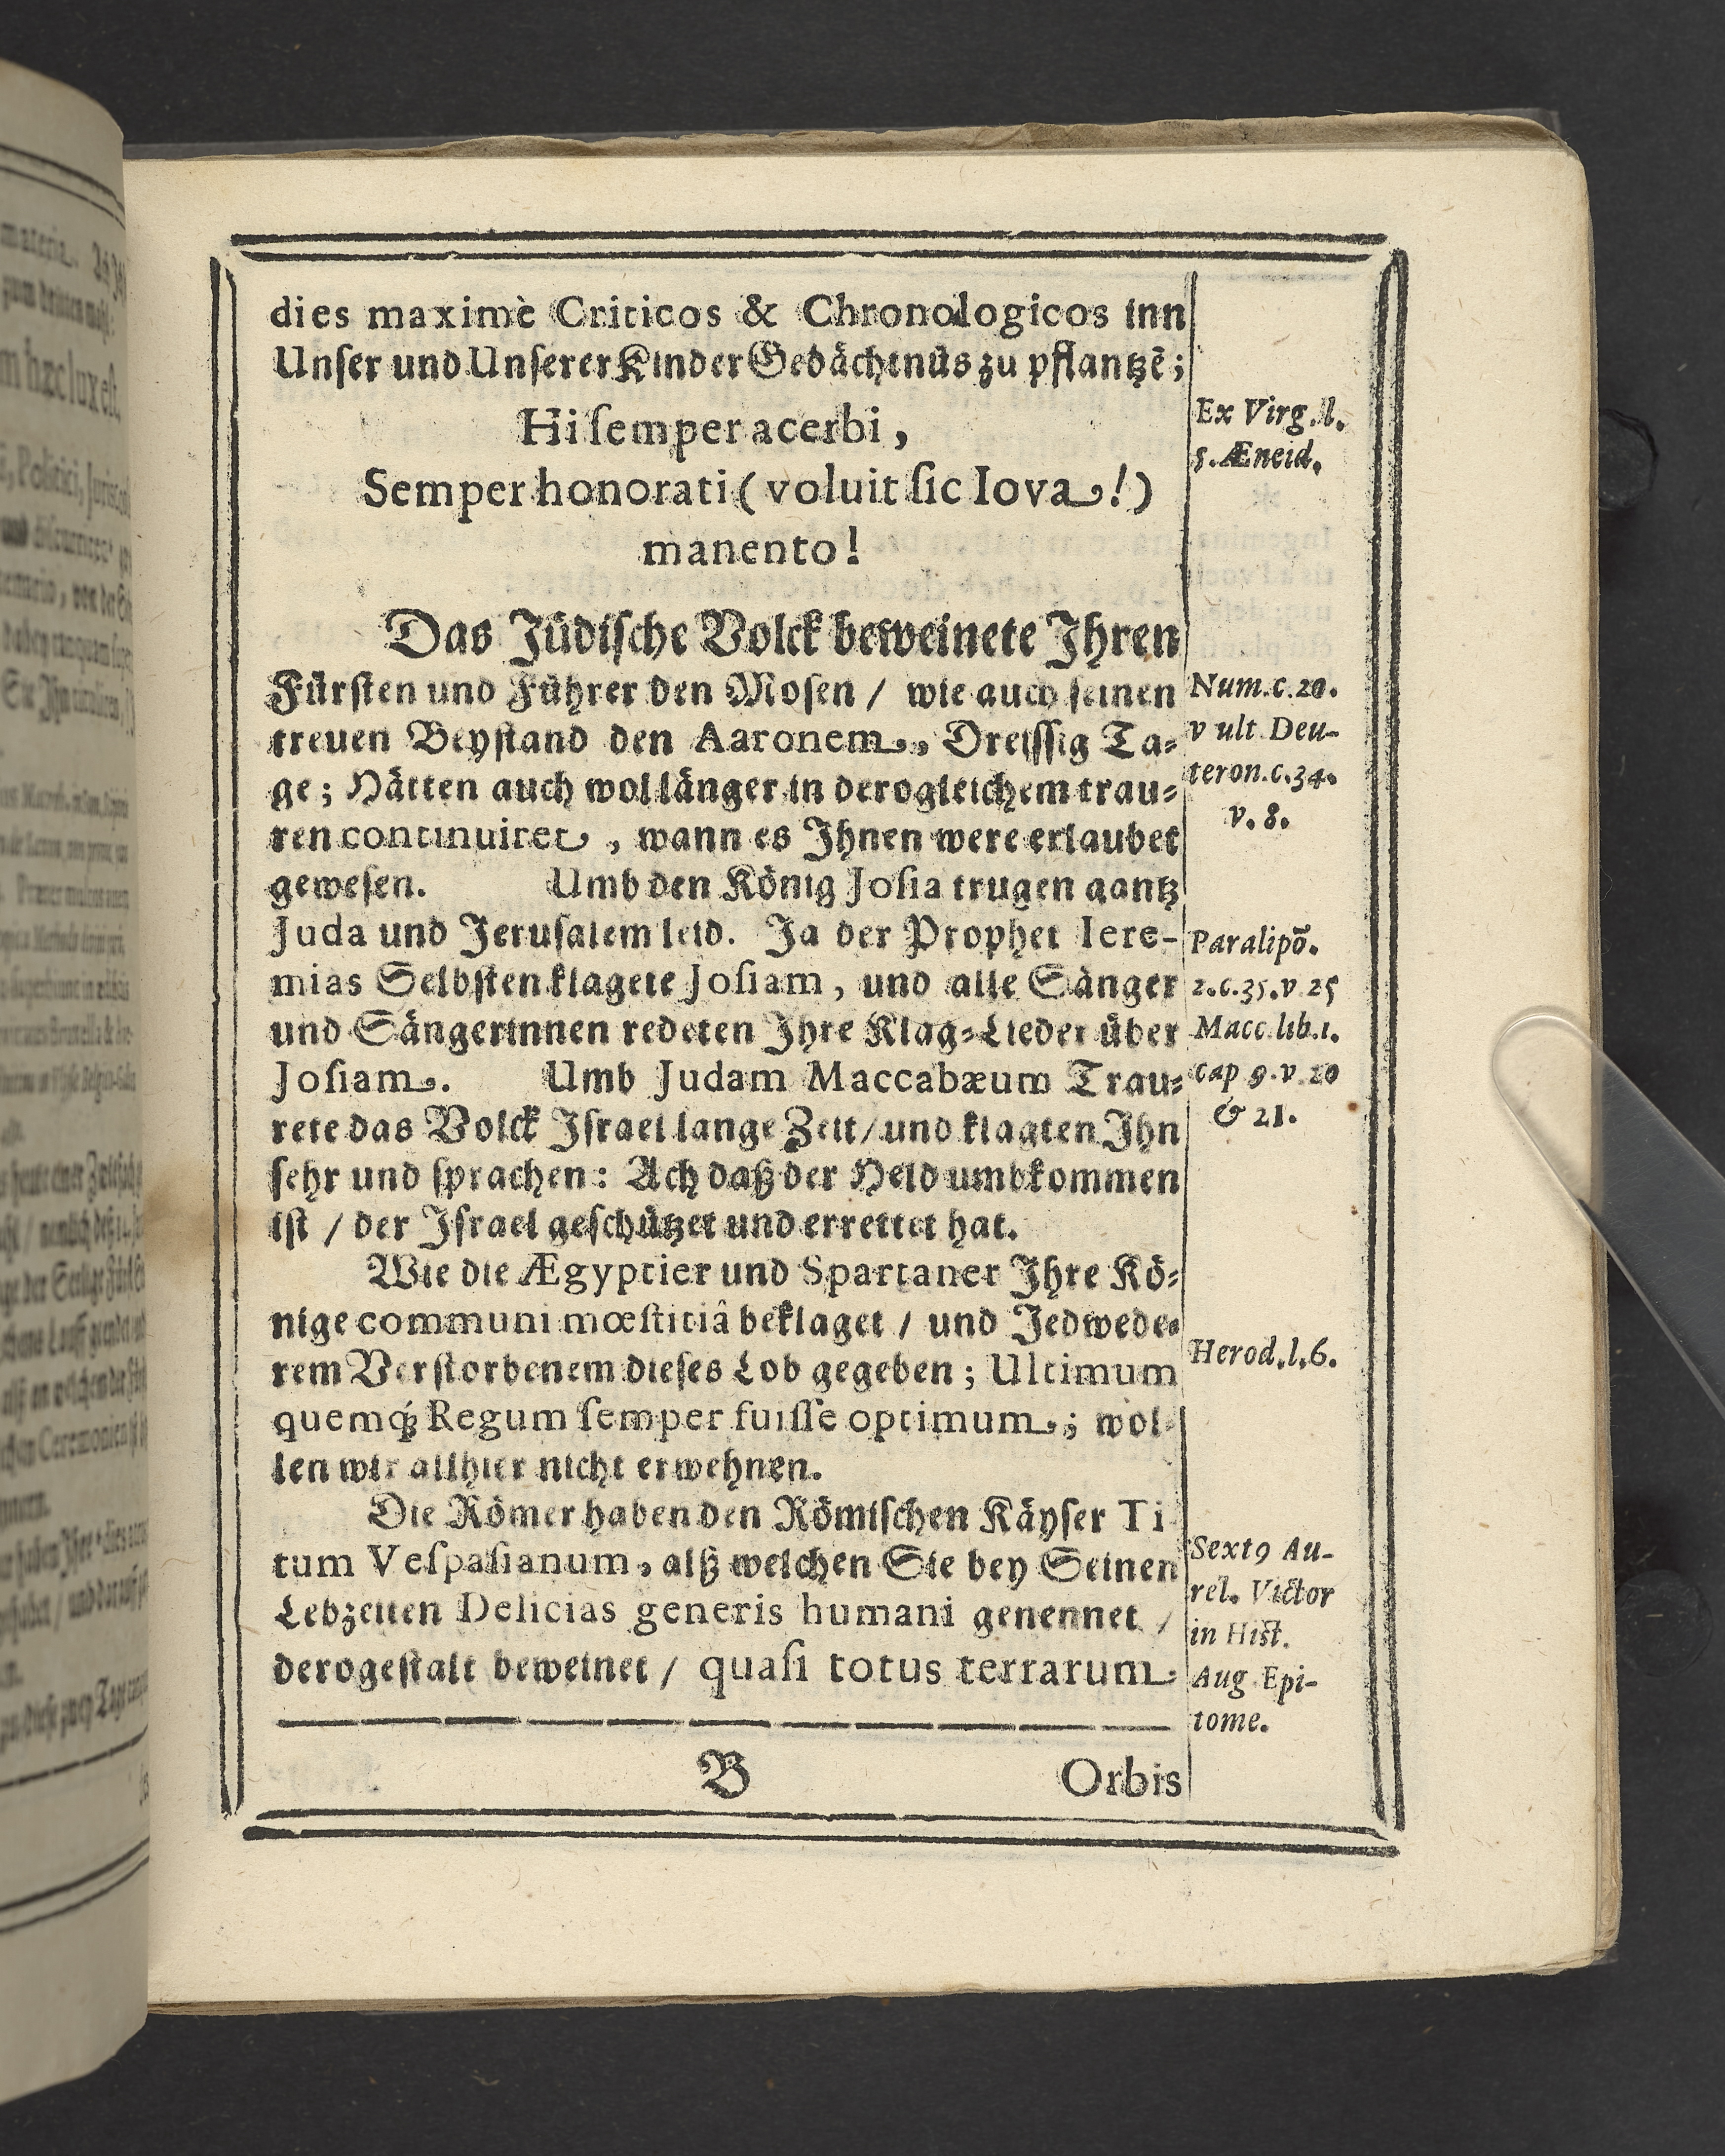 dies maximè Criticos & Chronologicos inn
Unſer und Unſerer Kinder Gedächtnüs zu pflantzē;
Hi ſemper acerbi,
Semper honorati (voluit ſic Iova!)
manento!
Ex Virg. l.
5. Æneid.
Das Jüdiſche Volck beweinete Ihren
Fürſten und Führer den Moſen / wie auch ſeinen
treuen Beyſtand den Aaronem, Dreiſſig Ta-
ge; Hätten auch wol länger in derogleichem trau-
ren continuiret, wann es Ihnen were erlaubet
geweſen. Umb den König Joſia trugen gantz
Juda und Jeruſalem leid. Ja der Prophet Iere-
mias Selbſten klagete Joſiam, und alle Sänger
und Sängerinnen redeten Ihre Klag-Lieder über
Joſiam. Umb Judam Maccabæum Trau-
rete das Volck Iſrael lange Zeit / und klagten Ihn
ſehr und ſprachen: Ach daß der Held umbkommen
iſt / der Iſrael geſchützet und errettet hat.
Num. c. 20.
v ult. Deu-
teron. c. 34.
v. 8.
Paralipō.
2. c. 35. v 25
Macc. lib. 1.
cap 9. v. 20
& 21.
Wie die Ægyptier und Spartaner Ihre Kö-
nige communi mœſtitiâ beklaget / und Jedwede-
rem Verſtorbenem dieſes Lob gegeben; Ultimum
quemq́; Regum ſemper fuiſſe optimum; wol-
len wir allhier nicht erwehnen.
Herod. l. 6.
Die Römer haben den Römiſchen Käyſer Ti-
tum Veſpaſianum, alß welchen Sie bey Seinen
Lebzeiten Delicias generis humani genennet /
derogeſtalt beweinet / quaſi totus terrarum
Sextꝰ Au-
rel. Victor
in Hiſt.
Aug. Epi-
tome.
B
Orbis